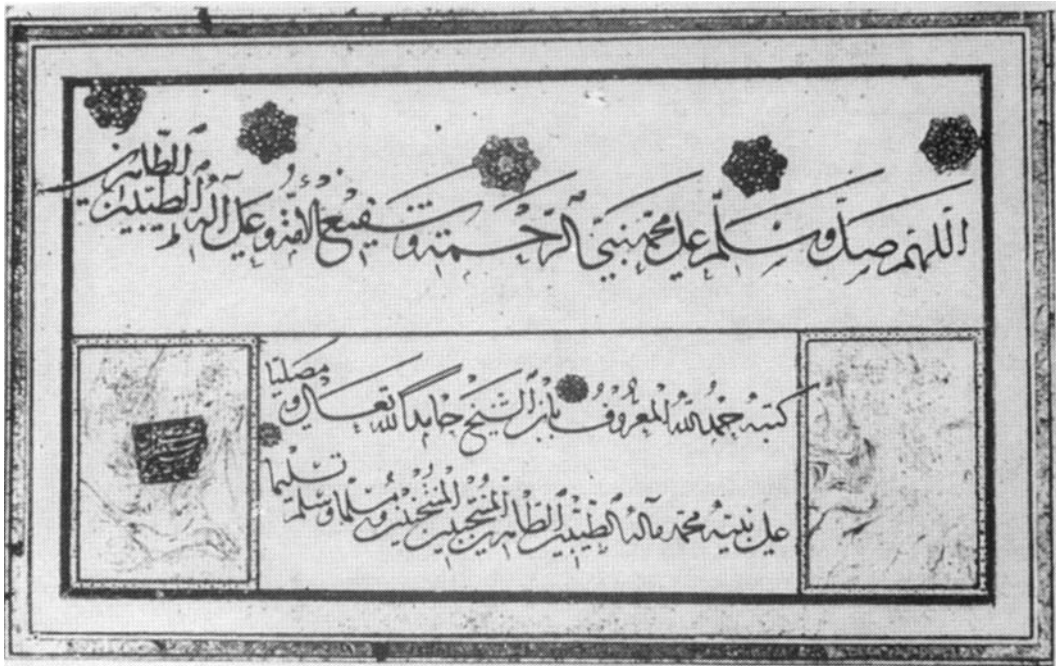 اللهم صل وسلم على محمد نبي الرحمة وشفيع الامة وعلى آله الطيبين الطاهرين
كتبه حمد الله المعروف بابن الشيخ حامدا لله تعالى ومصليا
على نبيه محمد وآله الطيبين الطاهرين المنتجبين ومسلما وسلم تسليما